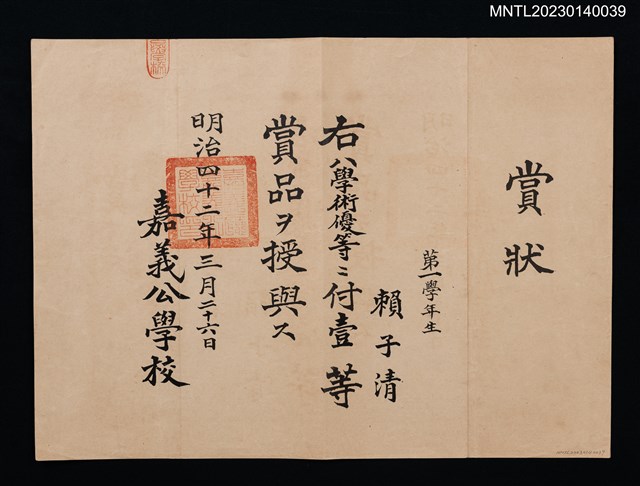 MNTL20230140039
賞狀
第一學年生
賴子清
右ハ學術優等ニ付壹等
賞品ヲ授與ス
明治四十二年三月二十六日
嘉義公學校